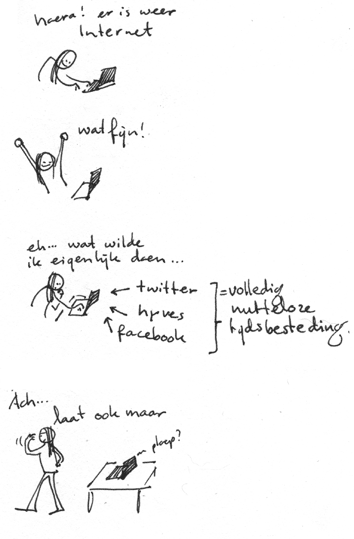 hoera! er is weer
Internet
wat fijn!
eh... wat wilde
ik eigenlijk doen...
← twitter
← hyves
↖ facebook
=volledig
nutteloze
tijdsbesteding.
Ach...
laat ook maar
ploep?